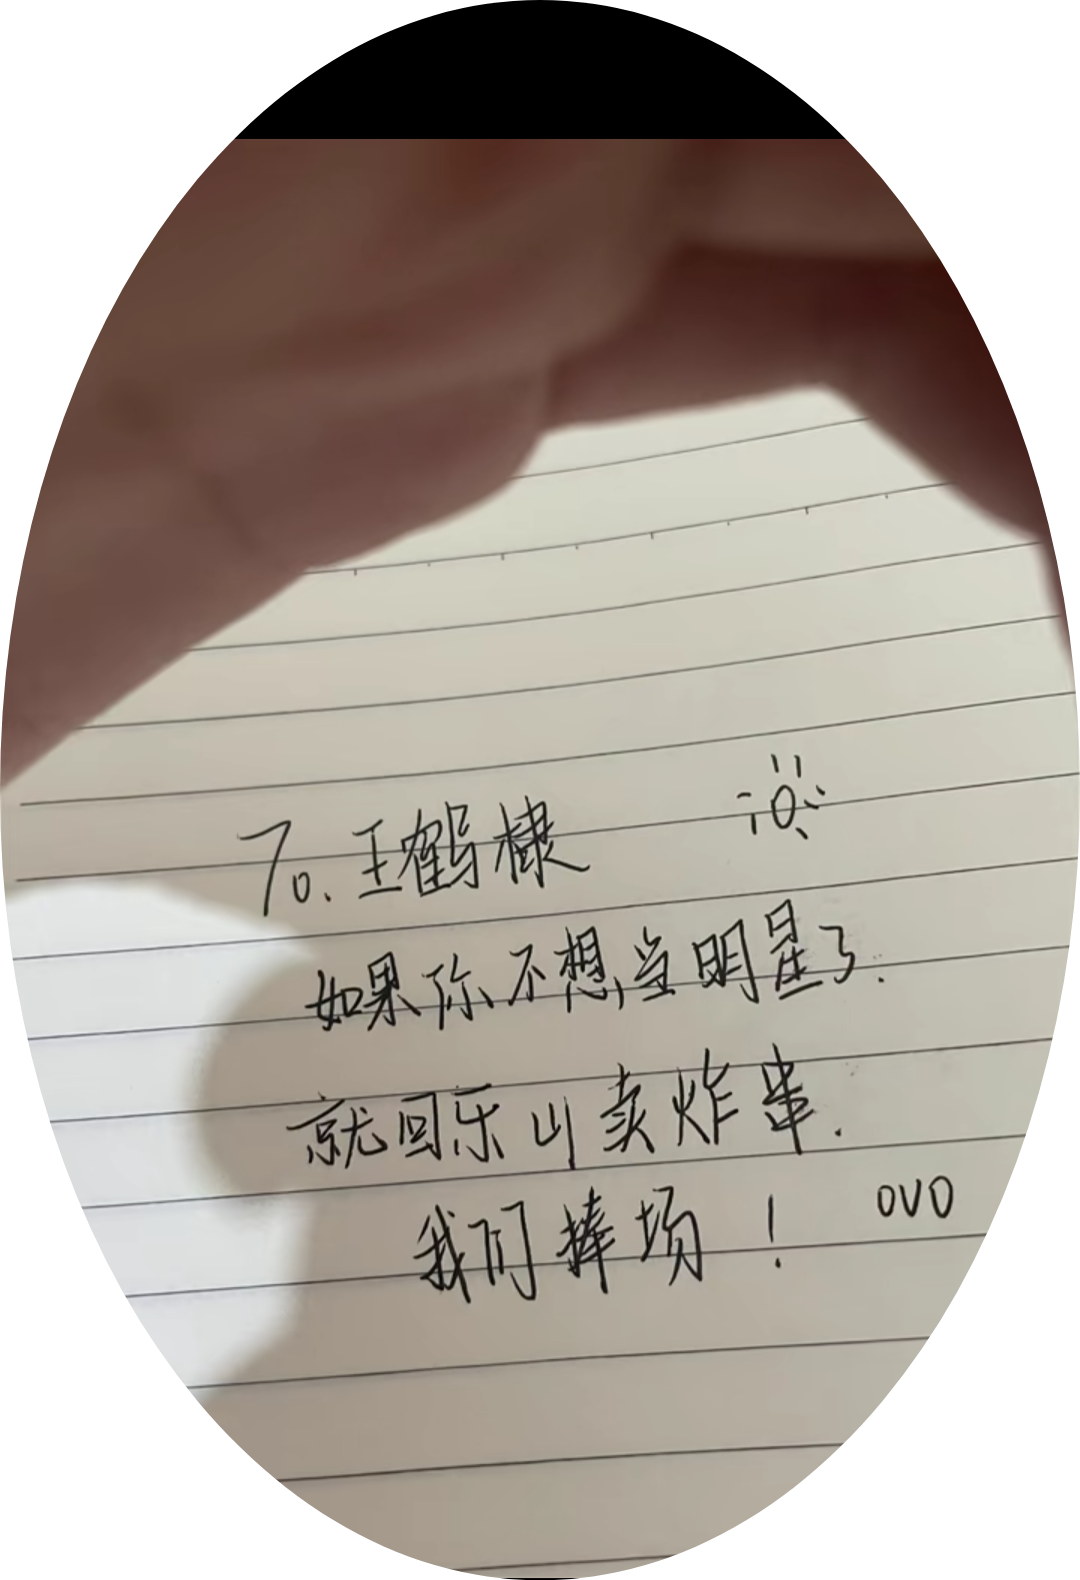 To.王鹤棣
如果你不想当明星了.
就回乐山卖炸串.
我们捧场! OVO